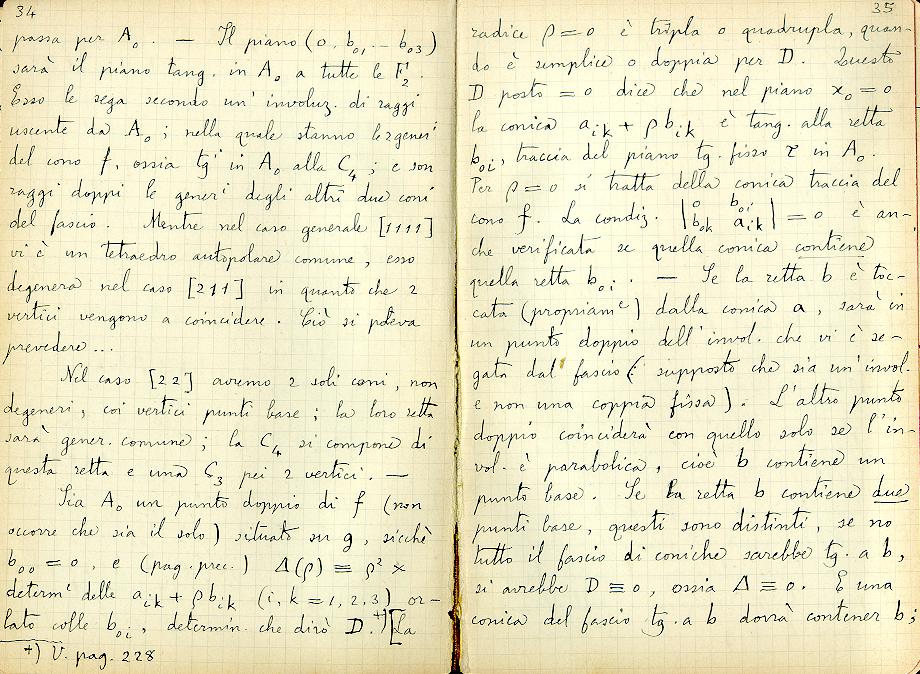 34
passa per A₀. — Il piano (0, b₀₁ ... b₀₃)
sarà il piano tang. in A₀ a tutte le F₂ⁱ.
Esso le sega secondo un' involuz. di raggi
uscente da A₀; nella quale stanno le 2 generⁱ
del cono f, ossia tgⁱ in A₀ alla C₄; e son
raggi doppi le generⁱ degli altri due coni
del fascio. Mentre nel caso generale [1111]
vi è un tetraedro autopolare comune, esso
degenera nel caso [211] in quanto che 2
vertici vengono a coincidere. Ciò si poteva
prevedere...
Nel caso [22] avremo 2 soli coni, non
degeneri, coi vertici punti base; la loro retta
sarà gener. comune; la C₄ si compone di
questa retta e una C₃ pei 2 vertici. —
Sia A₀ un punto doppio di f (non
occorre che sia il solo) situato su g, sicchè
b₀₀ = 0, e (pag. prec.) Δ(ρ) ≡ ρ² ×
determᵗ delle aᵢₖ + ρbᵢₖ (i, k = 1, 2, 3) or-
lato colle b₀ᵢ, determin. che dirò D.⁺⁾ [La
+) V. pag. 228
35
radice ρ = 0 è tripla o quadrupla, quan-
do è semplice o doppia per D. Questo
D posto = 0 dice che nel piano x₀ = 0
la conica aᵢₖ + ρbᵢₖ è tang. alla retta
b₀ᵢ, traccia del piano tg. fisso τ in A₀.
Per ρ = 0 si tratta della conica traccia del
cono f. La condiz. |0 b₀ᵢ / b₀ₖ aᵢₖ| = 0 è an-
che verificata se quella conica contiene
quella retta b₀ᵢ. — Se la retta b è toc-
cata (propriamᵉ) dalla conica a, sarà in
un punto doppio dell' invol. che vi è se-
gata dal fascio (: supposto che sia un' invol.
e non una coppia fissa). L'altro punto
doppio coinciderà con quello solo se l'in-
vol. è parabolica, cioè b contiene un
punto base. Se la retta b contiene due
punti base, questi sono distinti, se no
tutto il fascio di coniche sarebbe tg. a b,
si avrebbe D ≡ 0, ossia Δ ≡ 0. E una
conica del fascio tg. a b dovrà contener b;